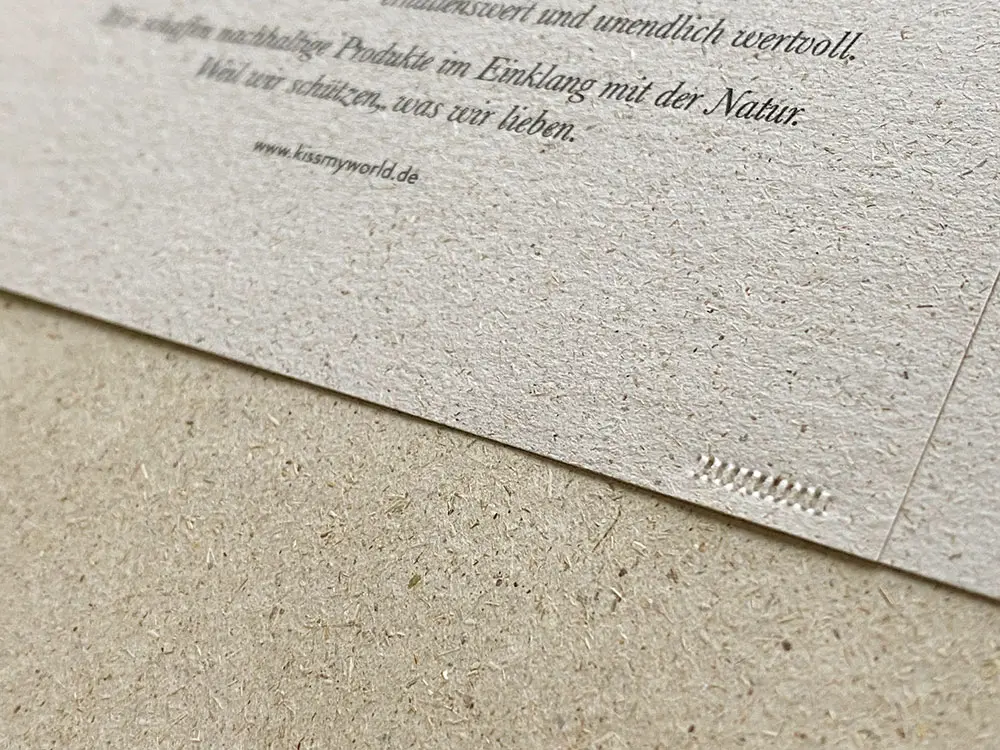 erhaltenswert und unendlich wertvoll.
Wir schaffen nachhaltige Produkte im Einklang mit der Natur.
Weil wir schützen, was wir lieben.
www.kissmyworld.de